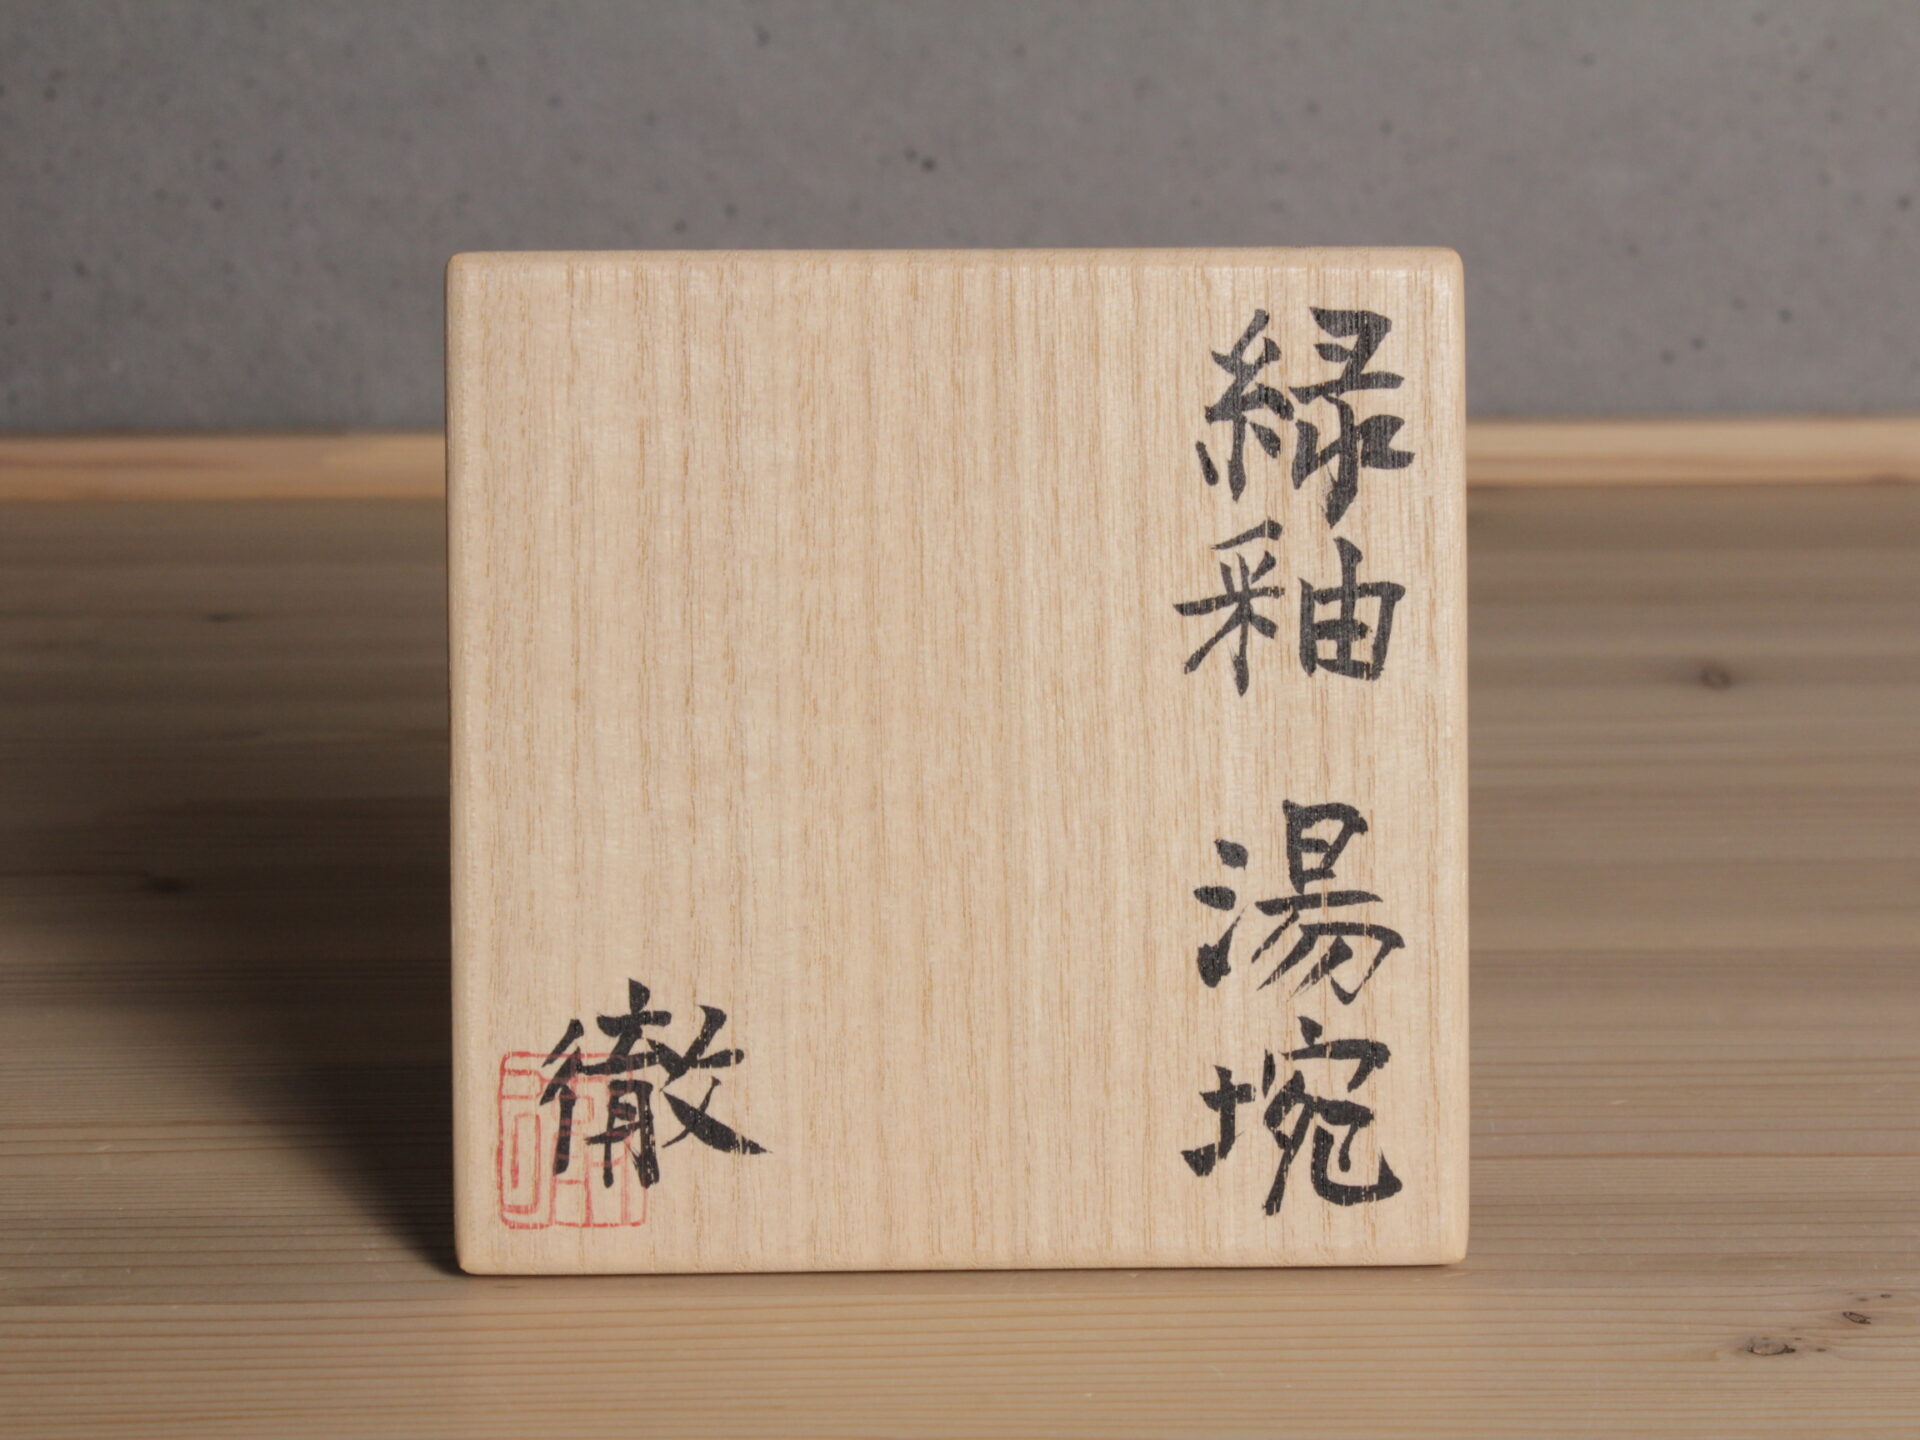 緑釉 湯埦
徹